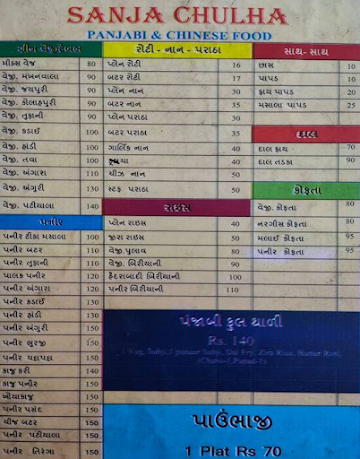 SANJA CHULHA
PANJABI & CHINESE FOOD
ગ્રીન વેજીટેબલ
મીક્સ વેજ 80
વેજી. મખનવાલા 90
વેજી. જયપુરી 90
વેજી. કોલ્હાપુરી 90
વેજી. તુફાની 90
વેજી. કડાઈ 100
વેજી. હાંડી 100
વેજી. તવા 100
વેજી. અંગારા 110
વેજી. અંગુરી 130
વેજી. પટીયાલા 140
પનીર
પનીર ટીકા મસાલા 100
પનીર બટર 110
પનીર તુફાની 110
પાલક પનીર 120
પનીર અંગારા 120
પનીર કડાઈ 130
પનીર હાંડી 130
પનીર અંગુરી 150
પનીર ભુરજી 150
પનીર પહાપહા 150
કાજુ કરી 140
કાજુ પનીર 150
ખોયાકાજુ 150
પનીર પસંદ 150
ચીજ બટર 150
પનીર પટીયાલા 150
પનીર તિરંગા 150
રોટી - નાન - પરાઠા
પ્લેન રોટી 16
બટર રોટી 35
પ્લેન નાન 30
બટર નાન 35
પ્લેન પરાઠા 30
બટર પરાઠા 35
ગાર્લિક નાન 40
40
ચીઝ નાન 50
સ્ટફ પરાઠા 50
રાઇસ
પ્લેન રાઇસ 40
જીરા રાઇસ 50
વેજી.પુલાવ 80
વેજી. બિરીયાની 90
હૈદરાબાદી બિરીયાની 100
પનીર બિરીયાની 110
સાથ- સાથ
છાસ 10
પાપડ 10
ફ્રાય પાપડ 20
મસાલા પાપડ 25
દાલ
દાલ ફ્રાય 70
દાલ તડકા 90
કોફતા
વેજી. કોફતા 80
નરગીસ કોફતા 80
મલાઈ કોફતા 95
પનીર કોફતા 95
પંજાબી ફુલ થાળી
Rs. 140
પાઉંભાજી
1 Plat Rs 70